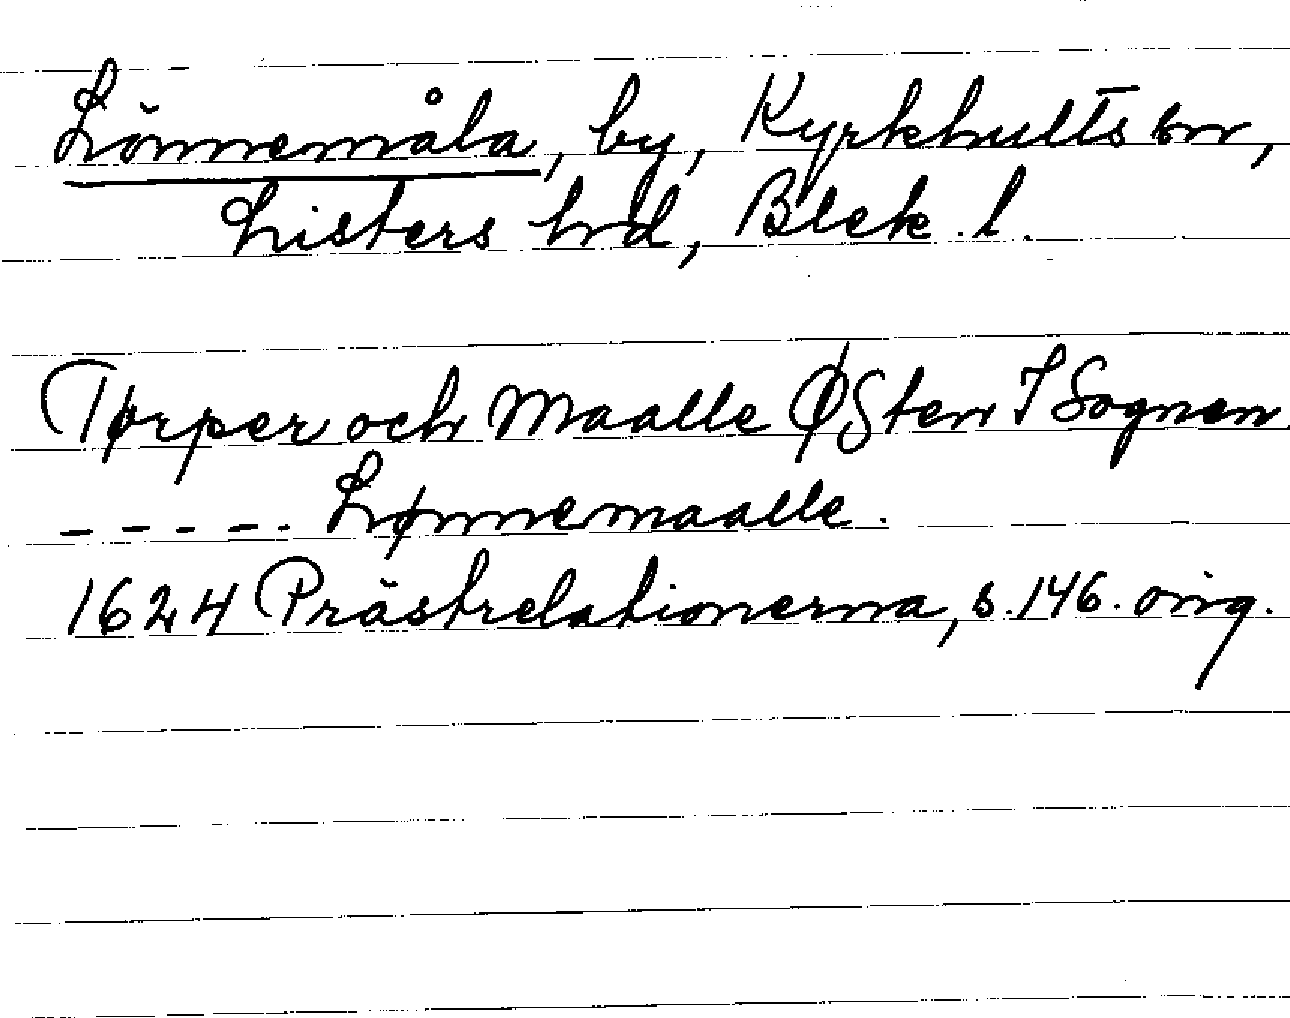 Lönnemåla, by, Kyrkhults sn,
Listers hd, Blek. l.
Tørper och Maalle ØSten I Sognen
- - - - -. Lønnemaalle.
1624 Prästrelationerna, s. 146. orig.